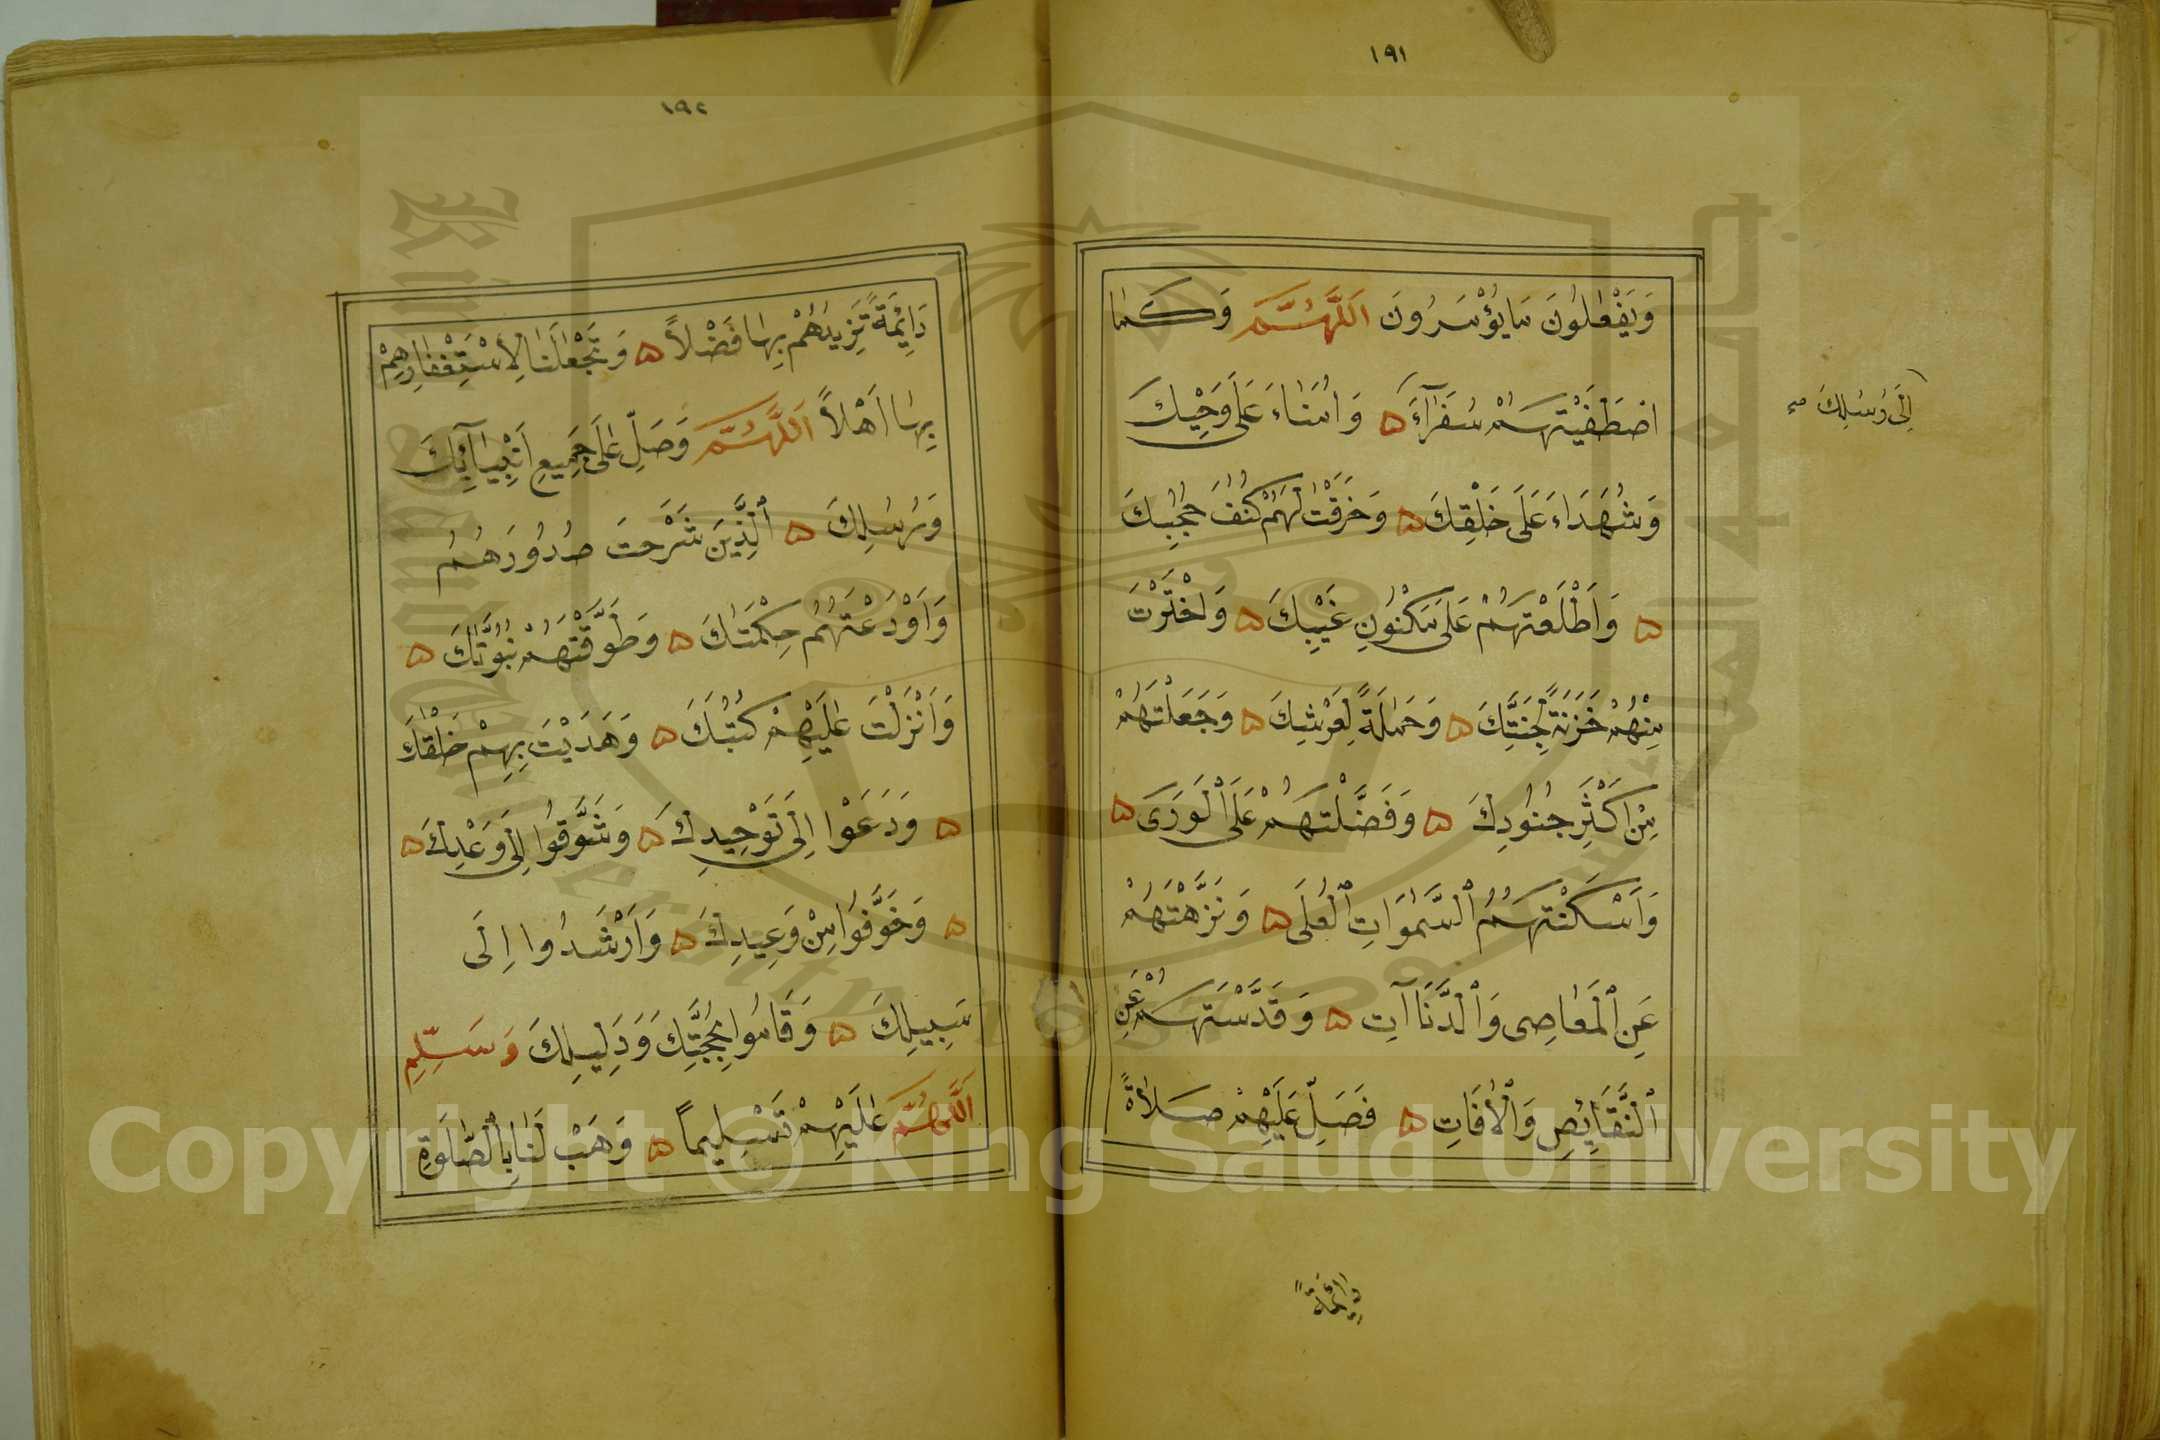 ١٩١
وَيَفْعَلُونَ مَا يُؤْمَرُونَ اَللَّهُمَّ وَكَمَا
اصْطَفَيْتَهُمْ سُفَرَآءَ وَاُمَنَاءَ عَلَى وَحْيِكَ
اِلَى رُسُلِكَ صح
وَشُهَدَاءَ عَلَى خَلْقِكَ وَخَرَقْتَ لَهُمْ كُنُفَ حُجُبِكَ
وَاَطْلَعْتَهُمْ عَلَى مَكْنُونِ غَيْبِكَ وَاخْتَرْتَ
مِنْهُمْ خَزَنَةً لِجَنَّتِكَ وَحَمَلَةً لِعَرْشِكَ وَجَعَلْتَهُمْ
مِنْ اَكْثَرِ جُنُودِكَ وَفَضَّلْتَهُمْ عَلَى ٱلْوَرَى
وَاَسْكَنْتَهُمُ ٱلسَّمٰوَاتِ ٱلْعُلَى وَنَزَّهْتَهُمْ
عَنِ ٱلْمَعَاصِى وَٱلدَّنَاآتِ وَقَدَّسْتَهُمْ عَنِ
ٱلنَّقَايِصِ وَٱلْاٰفَاتِ فَصَلِّ عَلَيْهِمْ صَلَاةً
دَائِمَةً
١٩٢
دَايِمَةً تَزِيدُهُمْ بِهَا فَضْلاً وَتَجْعَلُنَا لِاسْتِغْفَارِهِمْ
بِهَا اَهْلاً اَللَّهُمَّ وَصَلِّ عَلَى جَمِيعِ اَنْبِيَآئِكَ
وَرُسُلِكَ ٱلَّذِينَ شَرَحْتَ صُدُورَهُمْ
وَاَوْدَعْتَهُمْ حِكْمَتَكَ وَطَوَّقْتَهُمْ نُبُوَّتَكَ
وَاَنْزَلْتَ عَلَيْهِمْ كُتُبَكَ وَهَدَيْتَ بِهِمْ خَلْقَكَ
وَدَعَوْا اِلَى تَوْحِيدِكَ وَشَوَّقُوا اِلَى وَعْدِكَ
وَخَوَّفُوا مِنْ وَعِيدِكَ وَاَرْشَدُوا اِلَى
سَبِيلِكَ وَقَامُوا بِحُجَّتِكَ وَدَلِيلِكَ وَسَلِّمِ
اَللَّهُمَّ عَلَيْهِمْ تَسْلِيماً وَهَبْ لَنَا بِٱلصَّلَوةِ
Copyright © King Saud University